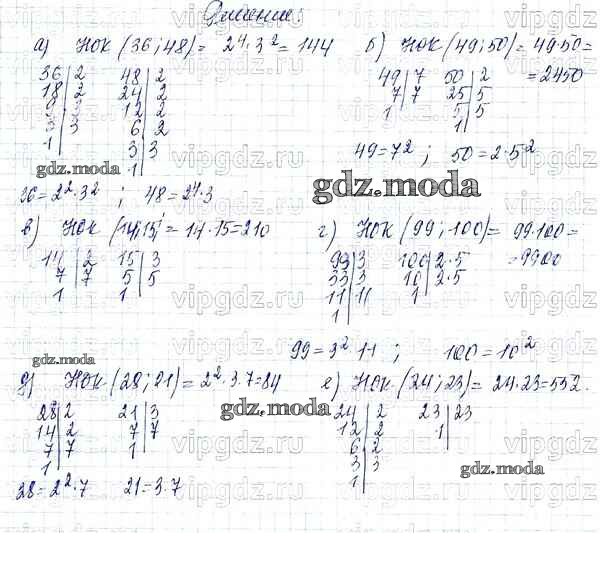 Решение:
а) НОК (36; 48) = 2⁴·3² = 144
36 | 2 48 | 2
18 | 2 24 | 2
9 | 3 12 | 2
3 | 3 6 | 2
1 | 3 | 3
1 |
36 = 2²·3² ; 48 = 2⁴·3
б) НОК (49; 50) = 49·50 =
= 2450
49 | 7 50 | 2
7 | 7 25 | 5
1 | 5 | 5
1 |
49 = 7² ; 50 = 2·5²
в) НОК (14; 15) = 14·15 = 210
14 | 2 15 | 3
7 | 7 5 | 5
1 | 1 |
г) НОК (99; 100) = 99·100 =
= 9900
99 | 3 100 | 2·5
33 | 3 10 | 2·5
11 | 11 1 |
1 |
99 = 3²·11 ; 100 = 10²
д) НОК (28; 21) = 2²·3·7 = 84
28 | 2 21 | 3
14 | 2 7 | 7
7 | 7 1 |
1 |
28 = 2²·7 21 = 3·7
е) НОК (24; 23) = 24·23 = 552.
24 | 2 23 | 23
12 | 2 1 |
6 | 2
3 | 3
1 |
gdz.moda
gdz.moda
gdz.moda
gdz.moda
gdz.moda
vipgdz.ru